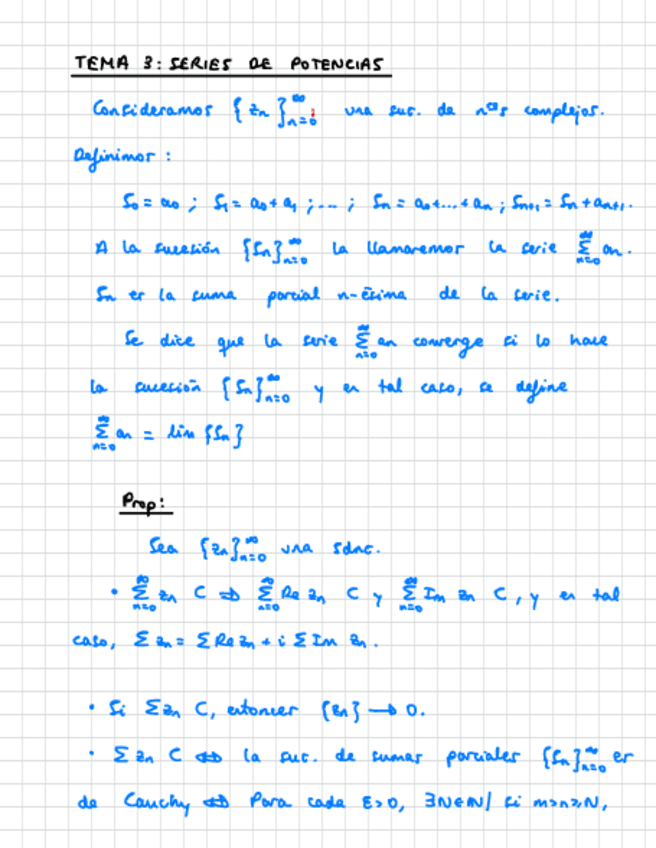 TEMA 3: SERIES DE POTENCIAS
Consideramos {zn}_{n=0}^∞ una suc. de nºs complejos.
Definimos:
S₀ = a₀ ; S₁ = a₀ + a₁ ; ... ; Sn = a₀ + ... + an ; Sn+1 = Sn + an+1.
A la sucesión {Sn}_{n=0}^∞ la llamaremos la serie Σ_{n=0}^∞ an.
Sn es la suma parcial n-ésima de la serie.
Se dice que la serie Σ_{n=0}^∞ an converge si lo hace
la sucesión {Sn}_{n=0}^∞ y en tal caso, se define
Σ_{n=0}^∞ an = lim {Sn}
Prop:
Sea {zn}_{n=0}^∞ una sdnc.
• Σ_{n=0}^∞ zn C ⇒ Σ_{n=0}^∞ Re zn C y Σ_{n=0}^∞ Im zn C, y en tal
caso, Σ zn = Σ Re zn + i Σ Im zn.
• Si Σ zn C, entonces {zn} → 0.
• Σ zn C ⇔ la suc. de sumas parciales {Sn}_{n=0}^∞ es
de Cauchy ⇔ Para cada ε>0, ∃N∈ℕ / si m>n≥N,